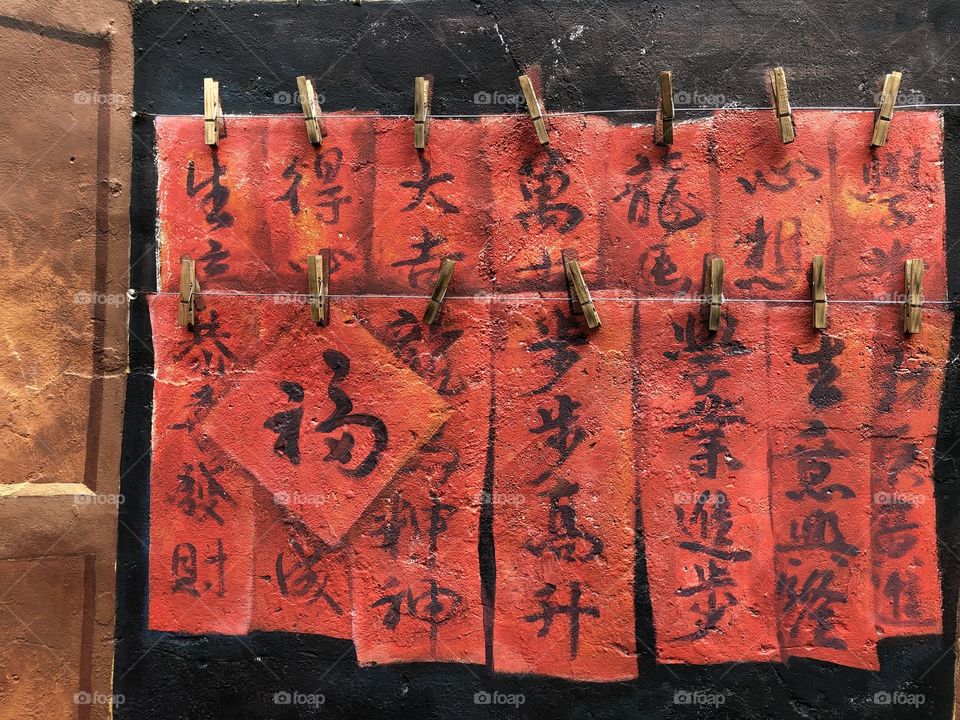 生
得心
大吉
萬
龍馬
心想
學
恭喜發財
福
成
龍
神
步步高升
學業進步
生意興隆
進
foap